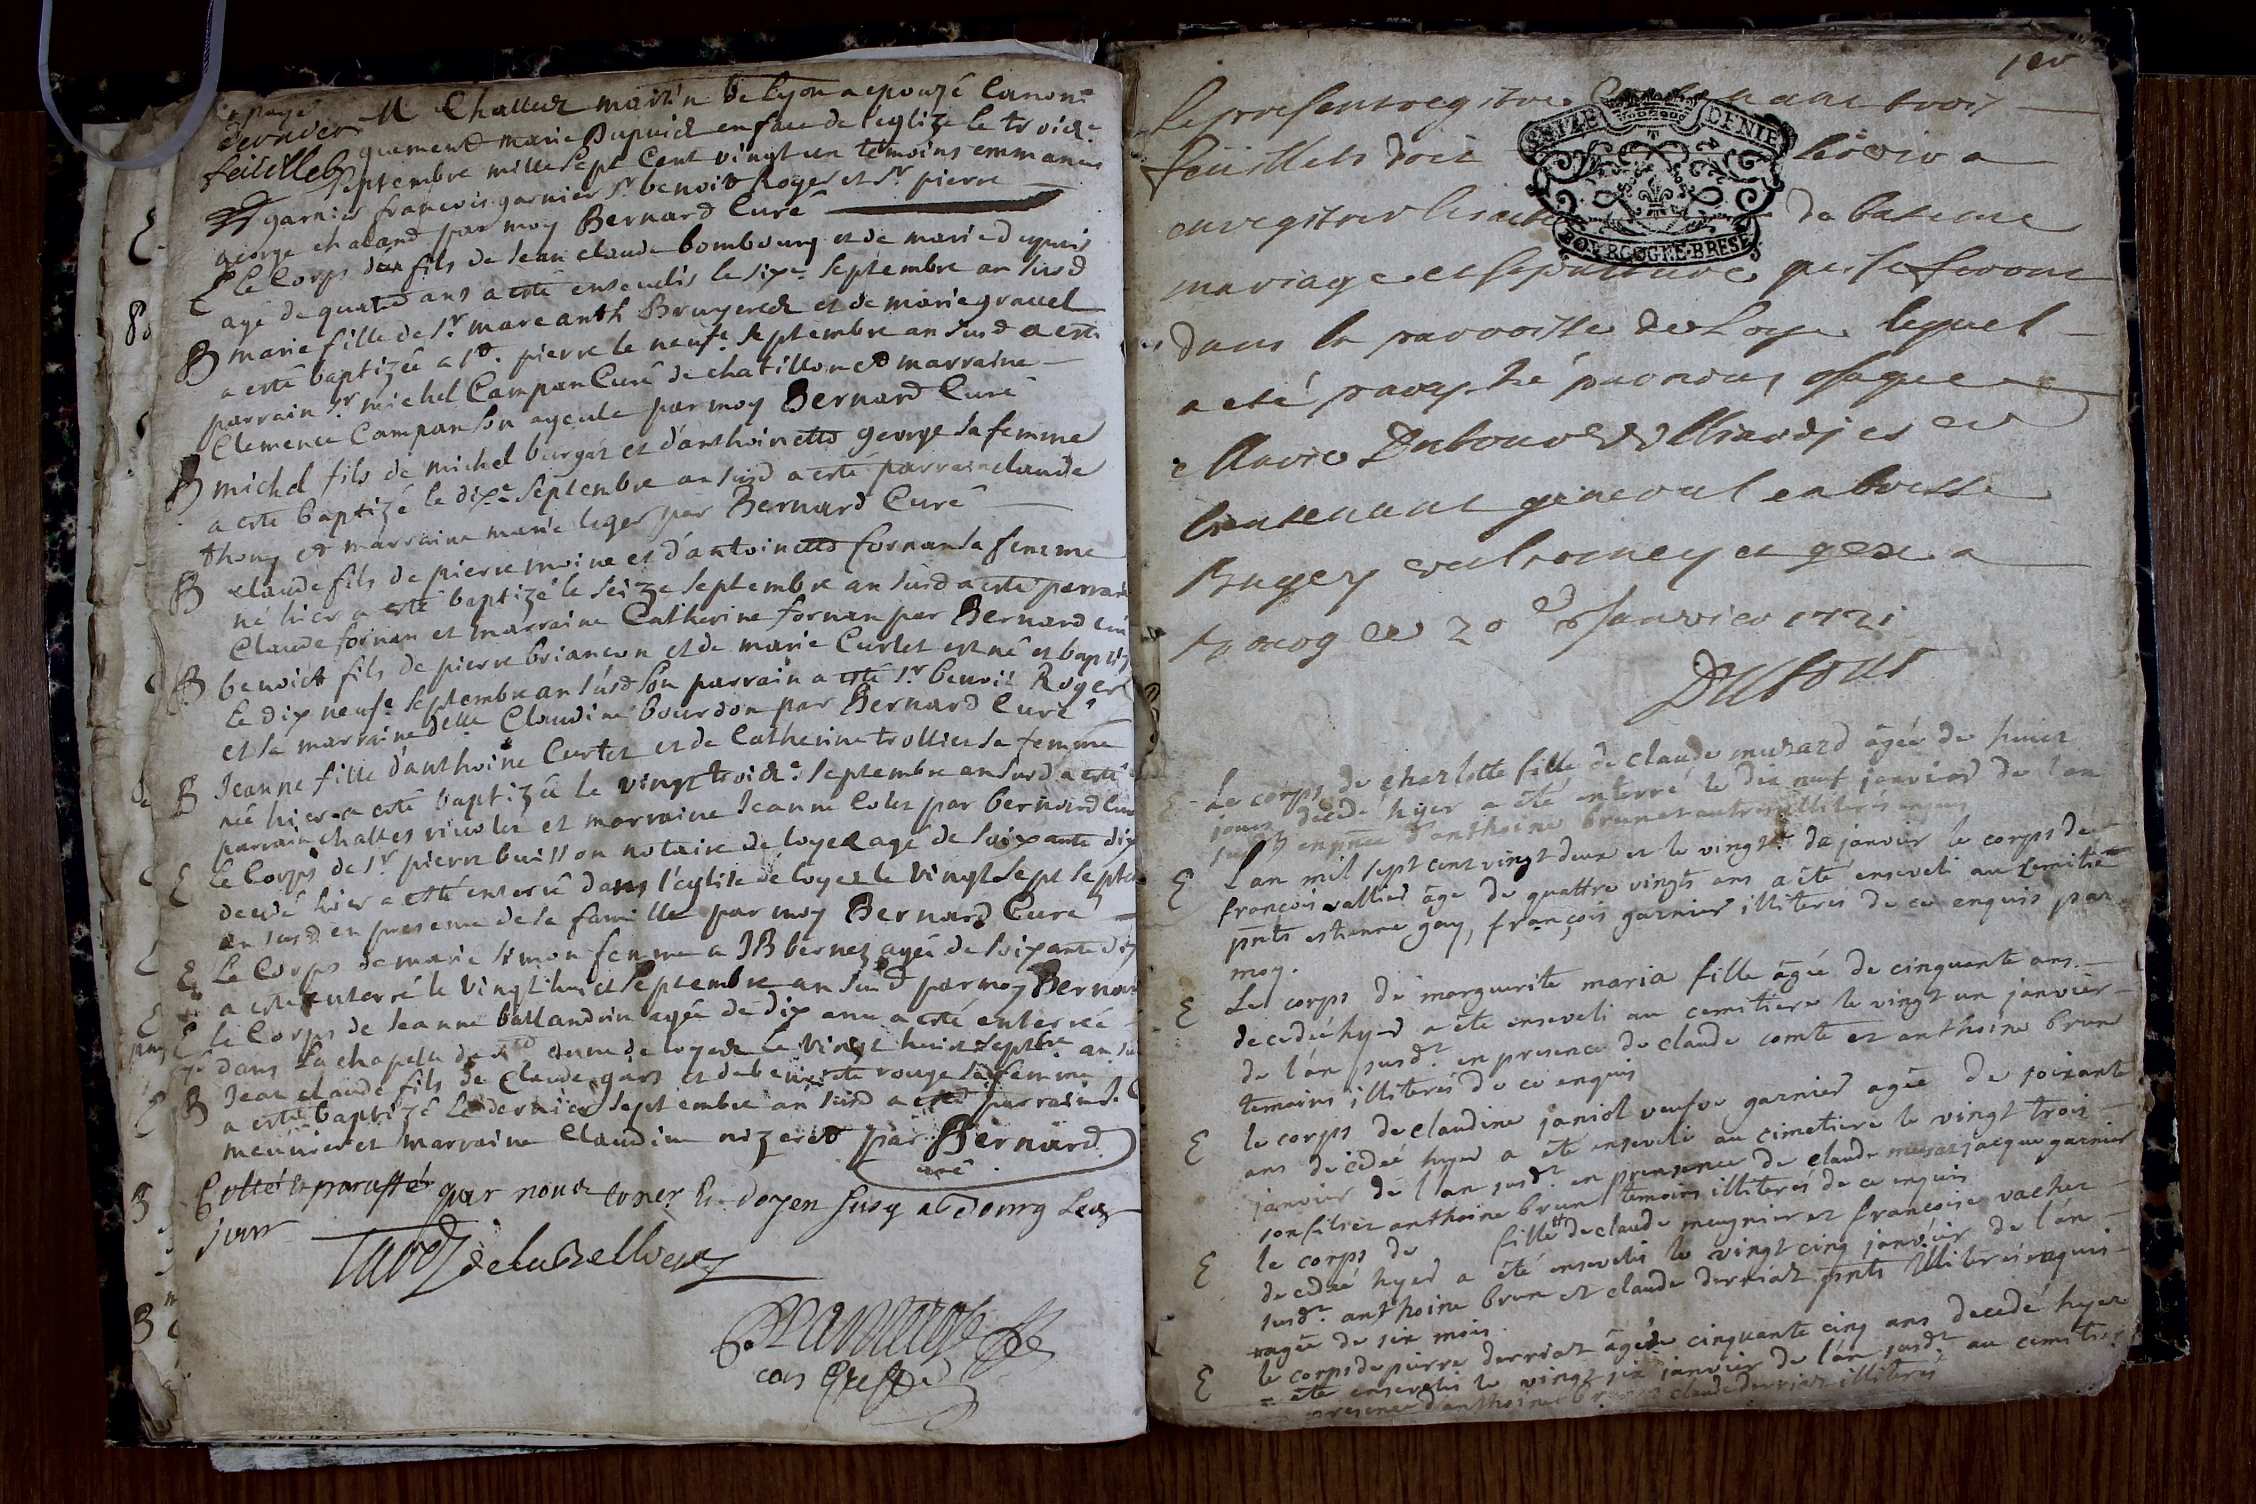 dernier M Challes martin de Lyon a epouzé Canoni
feuillet quement marie Dupuid en face de l'eglize le troisie
septembre mille sept cent vingt un temoins emmanuel
garnier francois garnier sr benoit Roger et sr pierre
george chaland par moy Bernard Curé
E le Corps d'un fils de Jean claude bombourg et de marie dupuis
agé de quatre ans a esté enseuelis le sixe septembre an susd
B marie fille de sr marc anth Bruyered et de marie grauel
a esté baptizée a st pierre le neufe septembre an susd a esté
parrain sr michel Campan Curé de chatillon et marraine
Clemence Campan son ayeule par moy Bernard Curé
B michel fils de michel burgat et d'anthoinette george sa femme
a esté baptizé le dixe septembre an susd a esté parrain claude
thony et marraine marie leger par Bernard Curé
B claude fils de pierre moine et d'antoinette fornan sa femme
né hier a esté baptizé le seize septembre an susd a esté parrain
Claude fornan et marraine Catherine fornan par Bernard cu
B benoict fils de pierre briancon et de marie Curtet est né et baptiz
le dix neufe septembre an susd son parrain a esté sr benoit Roger
et sa marraine delle Claudine bourdon par Bernard Curé
B Jeanne fille d'anthoine Curtet et de Catherine trollier sa femme
née hier a esté baptizée le vingt troise septembre an susd a esté
parrain challes rivolet et marraine Jeanne Colet par bernard Cu
E le Corps de sr pierre buisson notaire de loyes agé de soixante dix
decedé hier a esté enterré dans l'eglise de loyes le vingt sept septe
an susd en presence de sa famille par moy Bernard Curé
E Le Corps de marie simon femme a JB bernez agée de soixante dix
a esté enterré le vingt huict septembre an susd par moy Bernard
E le Corps de Jeanne ballandrin agée de dix ans a esté enterrée
dans la chapelle de loyes le vingt huict septbre an su
B Jean claude fils de Claude gars et de benoiste rouge sa femme
a esté baptizé le dernier septembre an susd a esté parrain
meunier et marraine Claudine nizeret par Bernard
curé
Cotté et paraffé par nous
jour
1er
le present registre Contenant trois
feuillets doit servir a
enregistrer les actes de bateme
mariage et sepulture qui se feront
dans la parroisse de Loye lequel
a eté paraphé par nous Jaque
Marie Dubour
lieutenant general en bresse
Bugey valromey et gex a
bourg le 20e Janvier 1721
Dubour
E Le corps de charlotte fille de claude muzard âgée de huict
jours decedé hyer a été enterré le dix neuf janvier de l'an
susdt en pnce d'anthoine brun et autres illiterés enquis
E L'an mil sept cent vingt deux et le vingt de janvier le corps de
francois vallier âgé de quattre vingts ans a été enseveli au cemitiere
pnts estienne gay, françois garnier illiterés de ce enquis par
moy.
E Le corps de marguerite maria fille âgée de cinquante ans
decedée hyer a été enseveli au cemitiere le vingt un janvier
de l'an susdt en presence de claude comte et anthoine brun
temoins illiterés de ce enquis
E le corps de claudine janiol veufve garnier agée de soixante
ans decedée hyer a été enseveli au cimetiere le vingt trois
janvier de l'an susdt en presence de claude muzar jacque garnier
son fils et anthoine brun temoins illiterés de ce enquis
E le corps de fille de claude meynier et francoise vacher
decedée hyer a été enseveli le vingt cinq janvier de l'an
susdt anthoine brun et claude derriat pnts illiterés enquis
agée de six mois
E le corps de pierre derriat âgé de cinquante cinq ans decedé hyer
a été enseveli le vingt six janvier de l'an susdt au cemitiere
presence d'anthoine brun et claude derriat illiterés
SEIZE DENIE
BOURGOGNE-BRESE